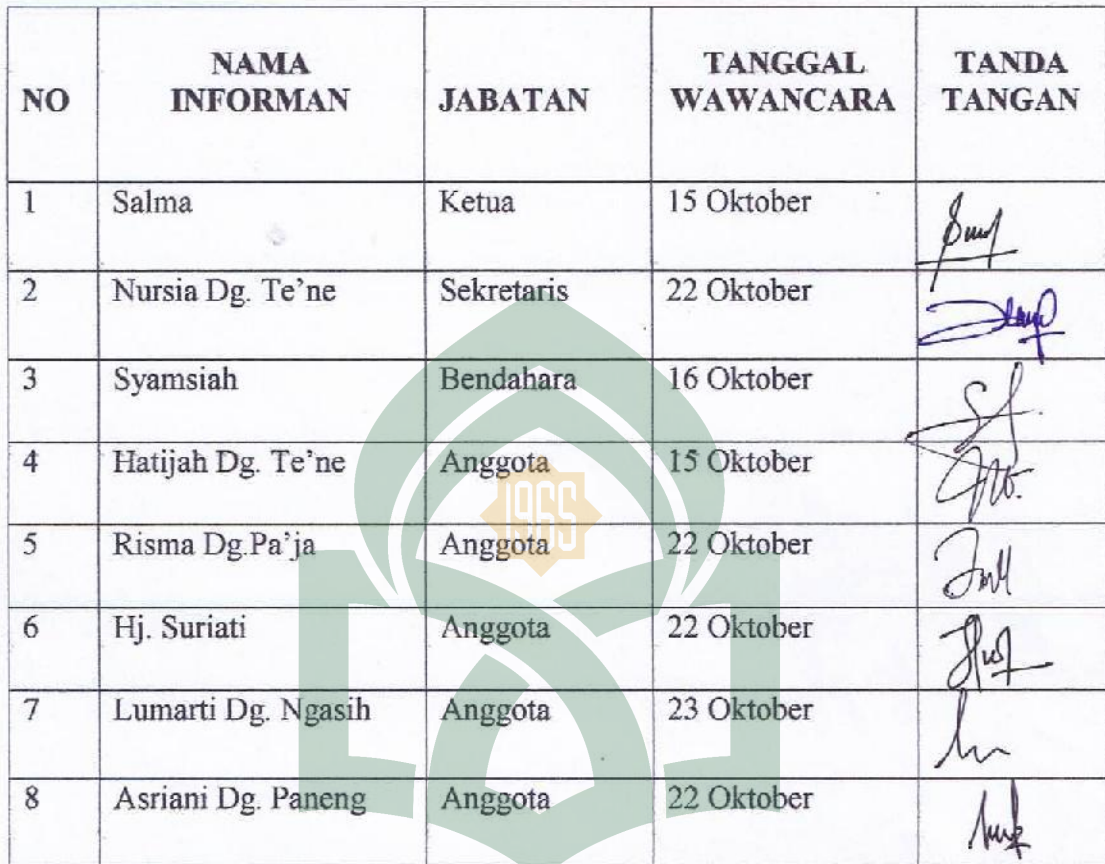 NO NAMA INFORMAN JABATAN TANGGAL WAWANCARA TANDA TANGAN
1 Salma Ketua 15 Oktober
2 Nursia Dg. Te’ne Sekretaris 22 Oktober
3 Syamsiah Bendahara 16 Oktober
4 Hatijah Dg. Te’ne Anggota 15 Oktober
1965
5 Risma Dg.Pa’ja Anggota 22 Oktober
6 Hj. Suriati Anggota 22 Oktober
7 Lumarti Dg. Ngasih Anggota 23 Oktober
8 Asriani Dg. Paneng Anggota 22 Oktober